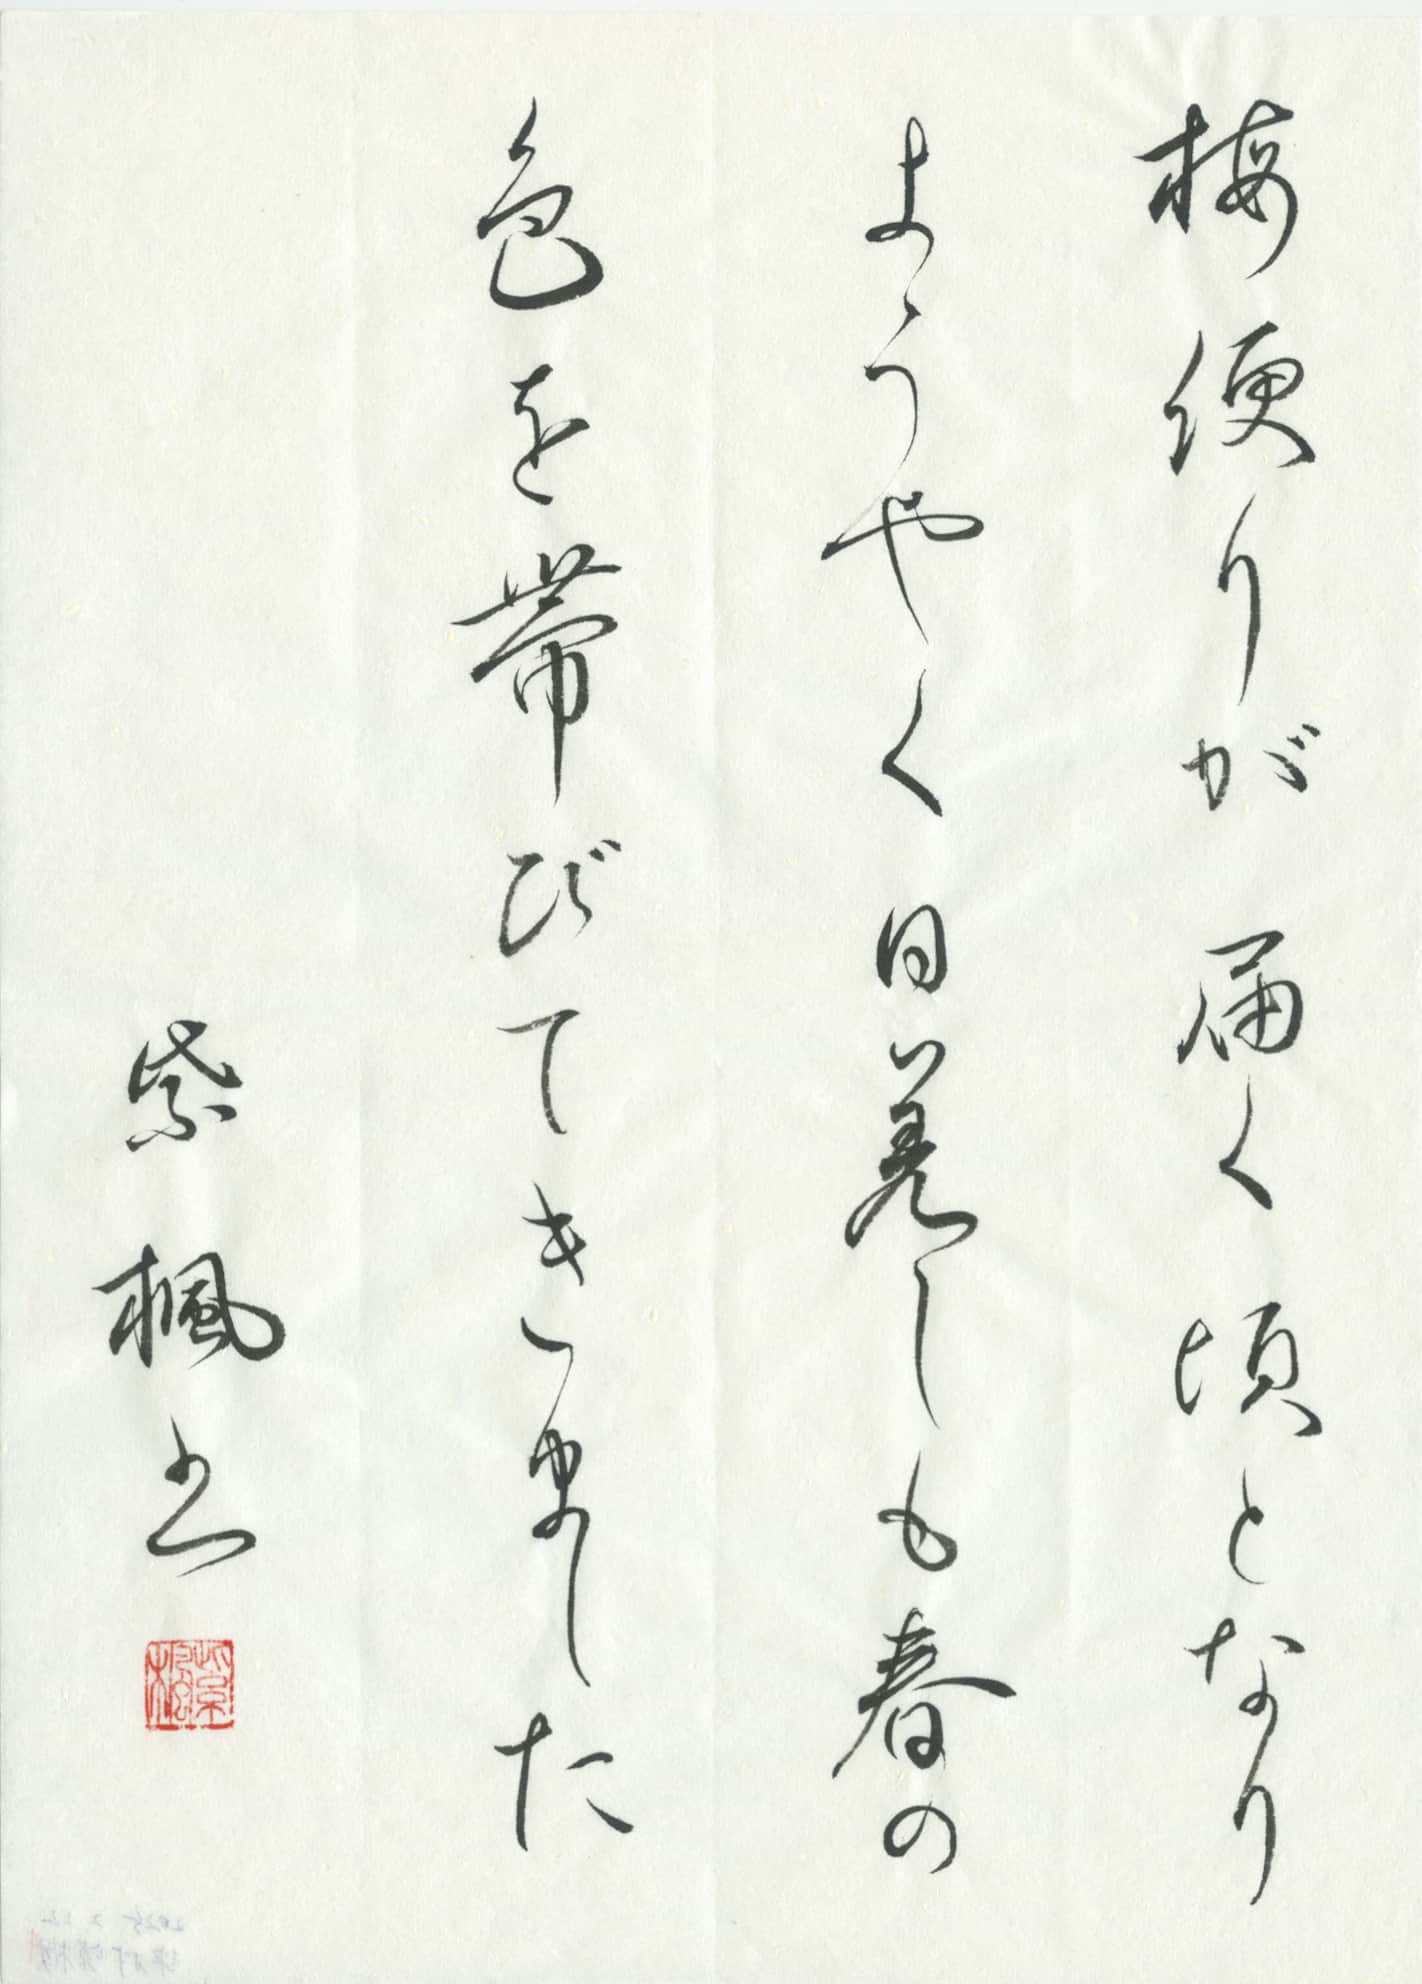 梅便りが届く頃となり
ようやく日差しも春の
色を帯びてきました
紫楓書
紫楓